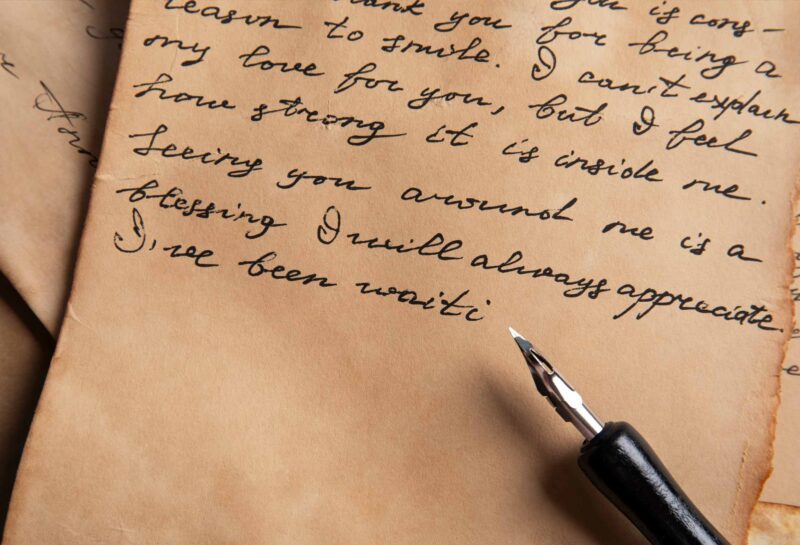 thank you for you is cons-
reason to smile. I can't explain
my love for you, but I feel
how strong it is inside me.
Seeing you around me is a
blessing I will always appreciate.
I've been waiti